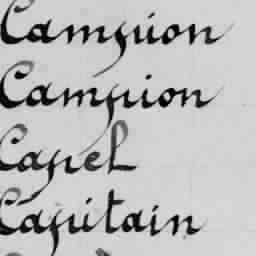 Campion
Campion
Capel
Capitain